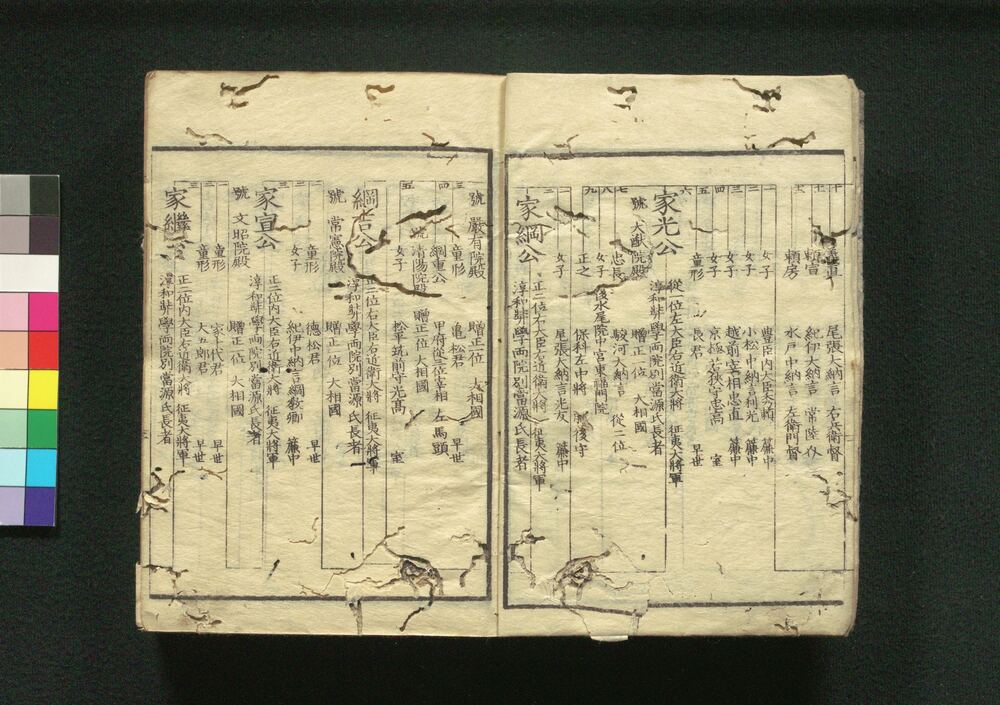 十 義直 尾張大納言 右兵衛督
頼宣 紀伊大納言 常陸介
頼房 水戸中納言 左衛門督
一 女子 豊臣内大臣秀頼 簾中
二 女子 小松中納言利光 簾中
三 女子 越前宰相忠直 簾中
四 女子 京極若狭守忠高 室
五 童形 長君 早世
六 家光公 從一位左大臣右近衛大将 征夷大将軍
淳和弉學両院別當源氏長者
號 大猷院殿 贈正一位 大相國
七 忠長 駿河大納言 從二位
八 女子 後水尾院中宮東福門院
九 正之 保科左中将 肥後守
一 女子 尾張大納言光友 簾中
二 家綱公 正二位右大臣右近衛大将 征夷大将軍
淳和弉學両院別當源氏長者
號 嚴有院殿 贈正一位 大相國
三 童形 亀松君 早世
四 綱重公 甲府從三位宰相 左馬頭
號 清揚院殿 贈正一位 大相國
五 女子 松平筑前守光高 室
綱吉公 正二位右大臣右近衛大将 征夷大将軍
淳和弉學両院別當源氏長者
號 常憲院殿 贈正一位 大相國
一 童形 徳松君 早世
二 女子 紀伊中納言綱教卿 簾中
家宣公 正二位内大臣右近衛大将 征夷大将軍
淳和弉學両院別當源氏長者
號 文昭院殿 贈正一位 大相國
一 童形 家千代君 早世
二 童形 大五郎君 早世
三 家繼公 正二位内大臣右近衛大将 征夷大将軍
淳和弉學両院別當源氏長者